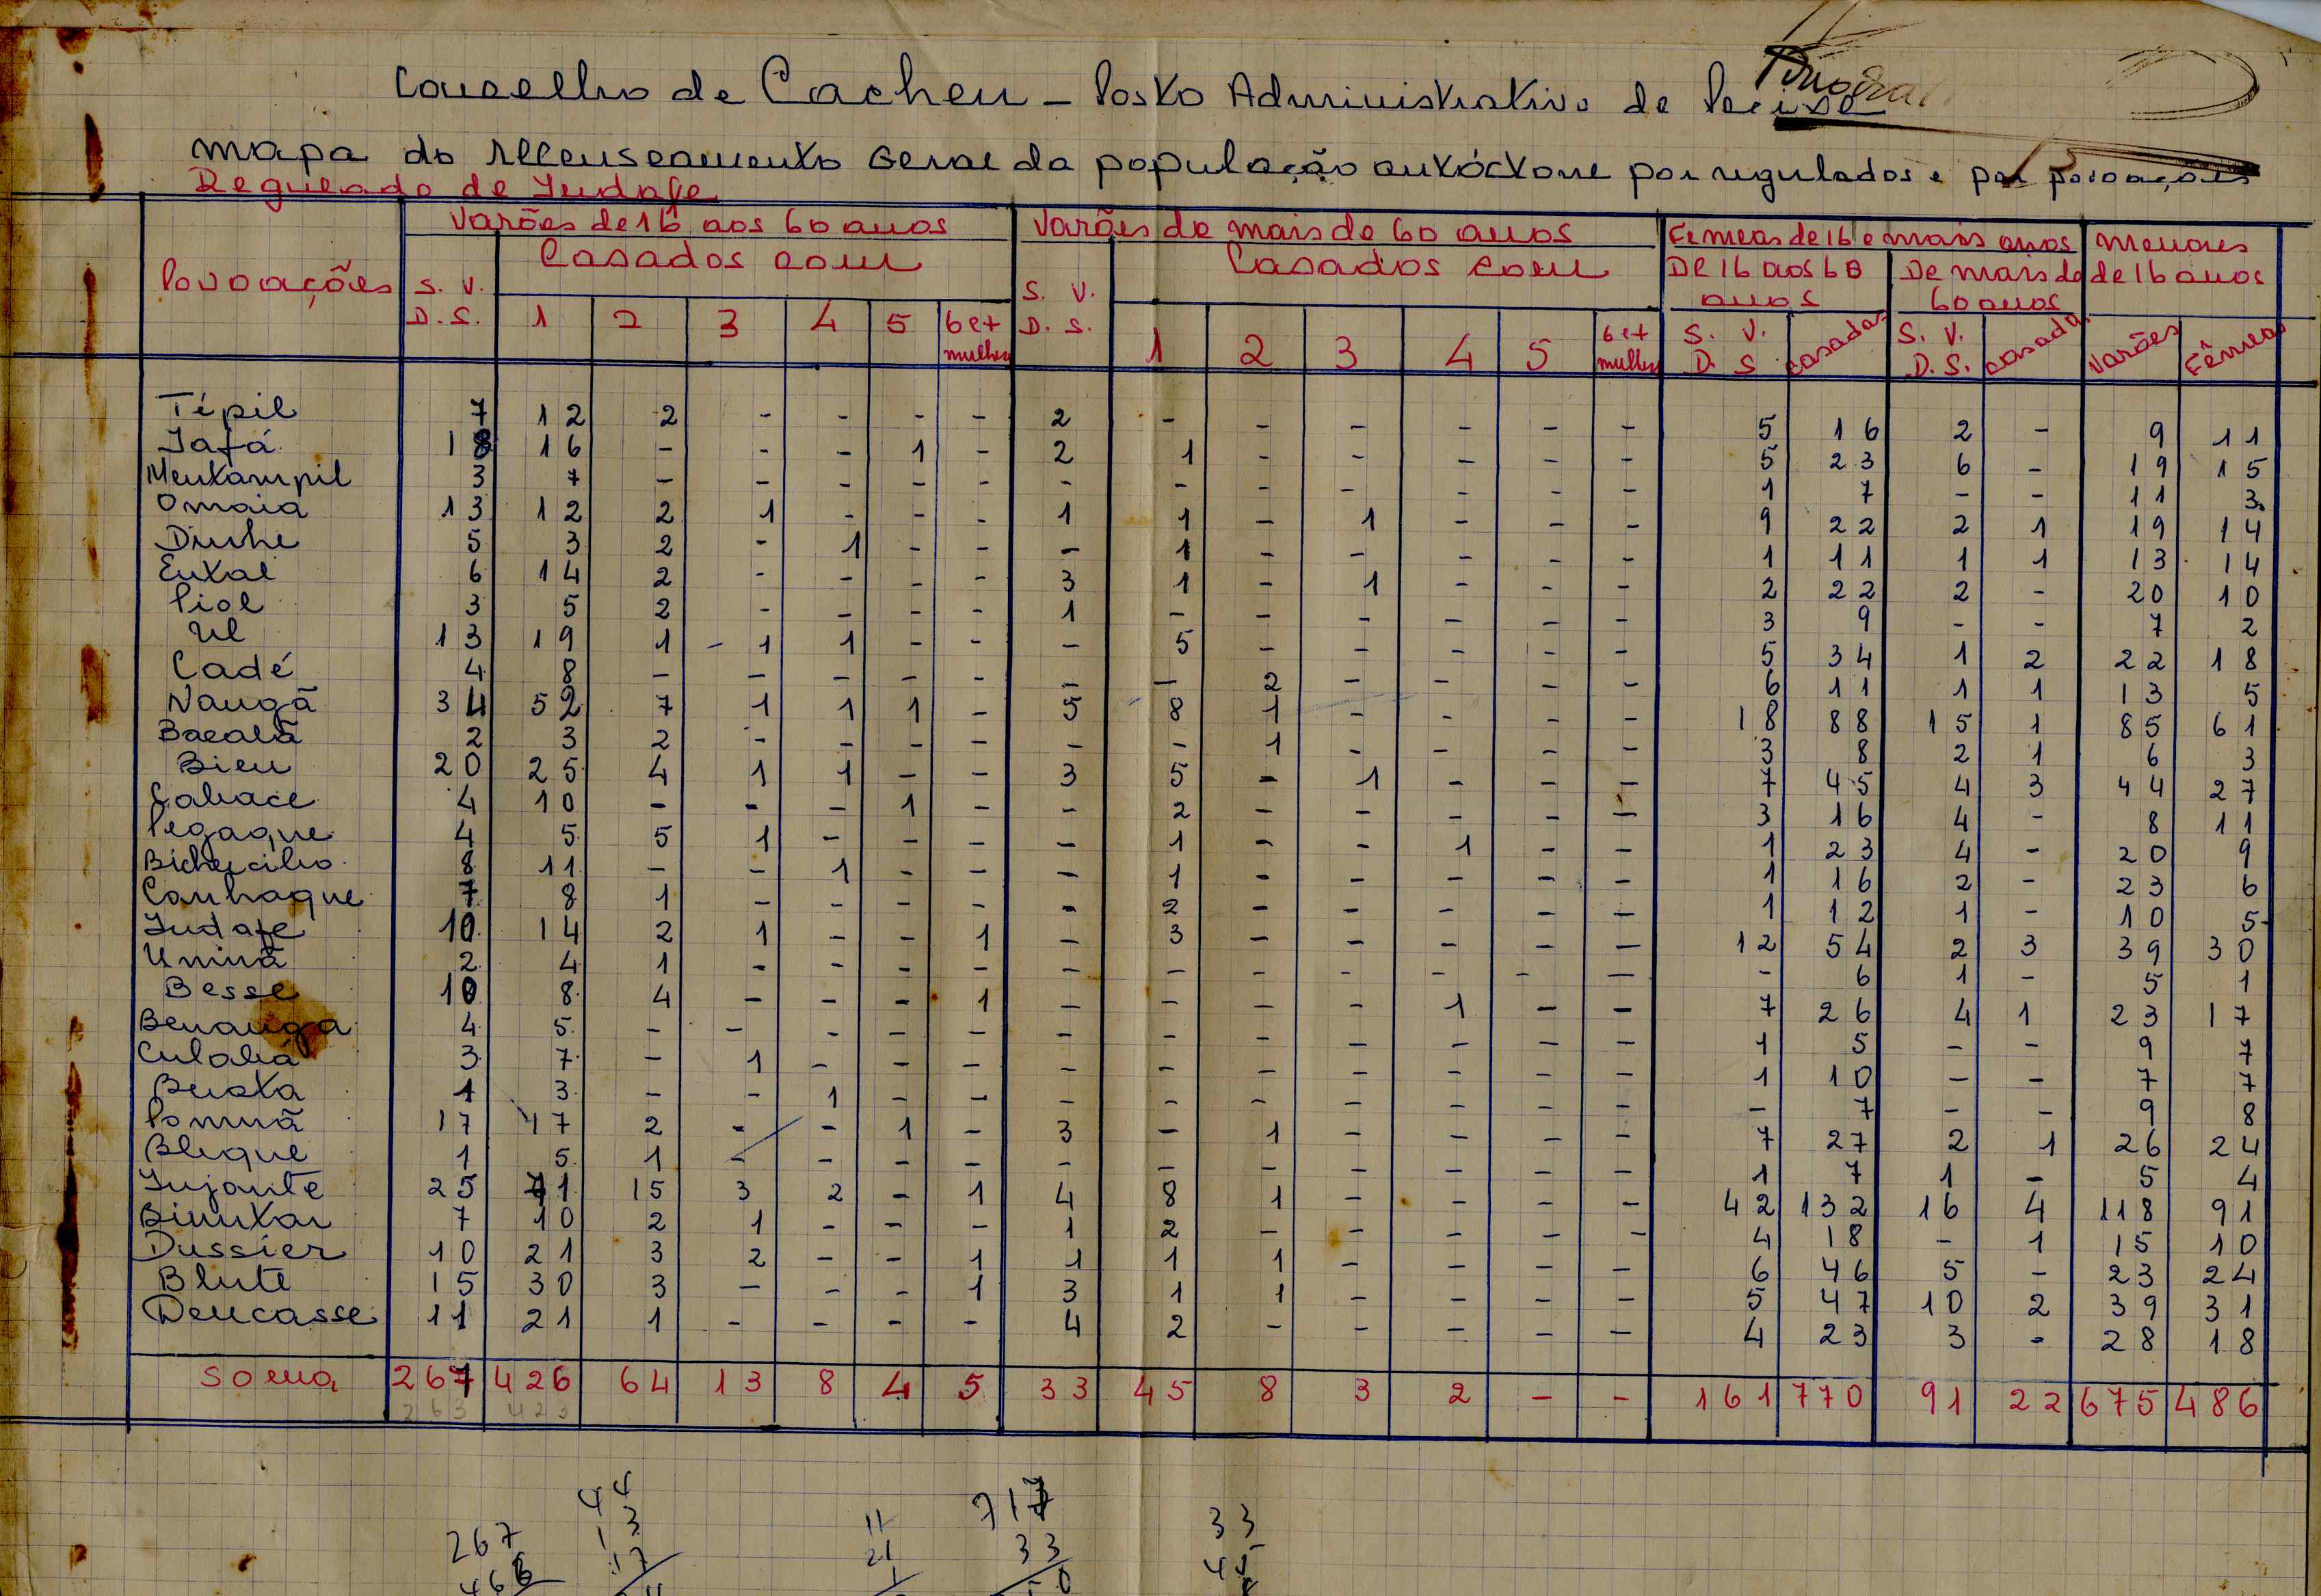 Concelho de Cacheu - Posto Administrativo de Pecixe
Mapa do recenseamento geral da população autóctone por regulados e por povoações
Regulado de Indafe
Povoações | Varões de 16 aos 60 anos | Varões de mais de 60 anos | Fêmeas de 16 e mais anos | Menores de 16 anos
S. V. D. S. | Casados com | S. V. D. S. | Casados com | De 16 aos 60 anos | De mais de 60 anos
1 2 3 4 5 6 e + mulher | 1 2 3 4 5 6 e + mulher | S. V. D. S. | casadas | S. V. D. S. | casadas | Varões | Fêmeas
Tépil 7 12 2 - - - - 2 - - - - - - 5 16 2 - 9 11
Jafá 18 16 - - - 1 - 2 1 - - - - - 5 23 6 - 19 15
Mentampil 3 7 - - - - - - - - - - - - 1 7 - - 11 3
Omaia 13 12 2 1 - - - 1 1 - 1 - - - 9 22 2 1 19 14
Dinhe 5 3 2 - 1 - - - 1 - - - - - 1 11 1 1 13 14
Ental 6 14 2 - - - - 3 1 - 1 - - - 2 22 2 - 20 10
Piol 3 5 2 - - - - 1 - - - - - - 3 9 - - 7 2
Ul 13 19 1 - 1 1 - - - 5 - - - - - 5 34 1 2 22 18
Cadé 4 8 - - - - - - - 2 - - - - 6 11 1 1 13 5
Nangã 34 52 7 1 1 1 - 5 8 1 - - - - 18 88 15 1 85 61
Bacalã 2 3 2 - - - - - - 1 - - - - 3 8 2 1 6 3
Bieu 20 25 4 1 1 - - 3 5 - 1 - - - 7 45 4 3 44 27
Cabace 4 10 - - - 1 - - 2 - - - - - 3 16 4 - 8 11
Pegaque 4 5 5 1 - - - - 1 - - 1 - - 1 23 4 - 20 9
8 11 - - 1 - - - 1 - - - - - 1 16 2 - 23 6
Canhaque 7 8 1 - - - - - 2 - - - - - 1 12 1 - 10 5
Indafe 10 14 2 1 - - 1 - 3 - - - - - 12 54 2 3 39 30
Uninã 2 4 1 - - - - - - - - - - - - 6 1 - 5 1
Besse 10 8 4 - - - 1 - - - - 1 - - 7 26 4 1 23 17
Benanga 4 5 - - - - - - - - - - - - 1 5 - - 9 7
Culabá 3 7 - 1 - - - - - - - - - - 1 10 - - 7 7
Beota 1 3 - - 1 - - - - - - - - - - 7 - - 9 8
Pomnã 17 17 2 - - 1 - 3 - 1 - - - - 7 27 2 1 26 24
Blique 1 5 1 - - - - - - - - - - - 1 7 1 - 5 4
Injante 25 71 15 3 2 - 1 4 8 1 - - - - 42 132 16 4 118 91
Bimtar 7 10 2 1 - - - 1 2 - - - - - 4 18 - 1 15 10
Dussier 10 21 3 2 - - 1 1 1 1 - - - - 6 46 5 - 23 24
Blute 15 30 3 - - - 1 3 1 1 - - - - 5 47 10 2 39 31
Dencasse 11 21 1 - - - - 4 2 - - - - - 4 23 3 - 28 18
Soma 267 426 64 13 8 4 5 33 45 8 3 2 - - 161 770 91 22 675 486
263 423
44
13
17
267
466
11
21
717
33
33
45